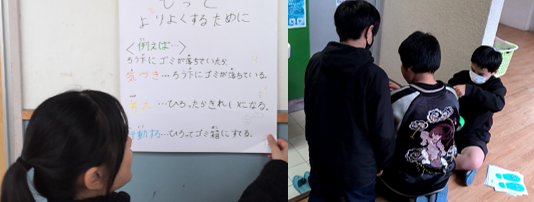 もっと
よりよくするために
<例えば…>
ろう下にゴミが落ちていたら
気づき…ろう下にゴミが落ちている。
考え…ひろったらきれいになる。
行動する…ひろってゴミ箱にすてる。